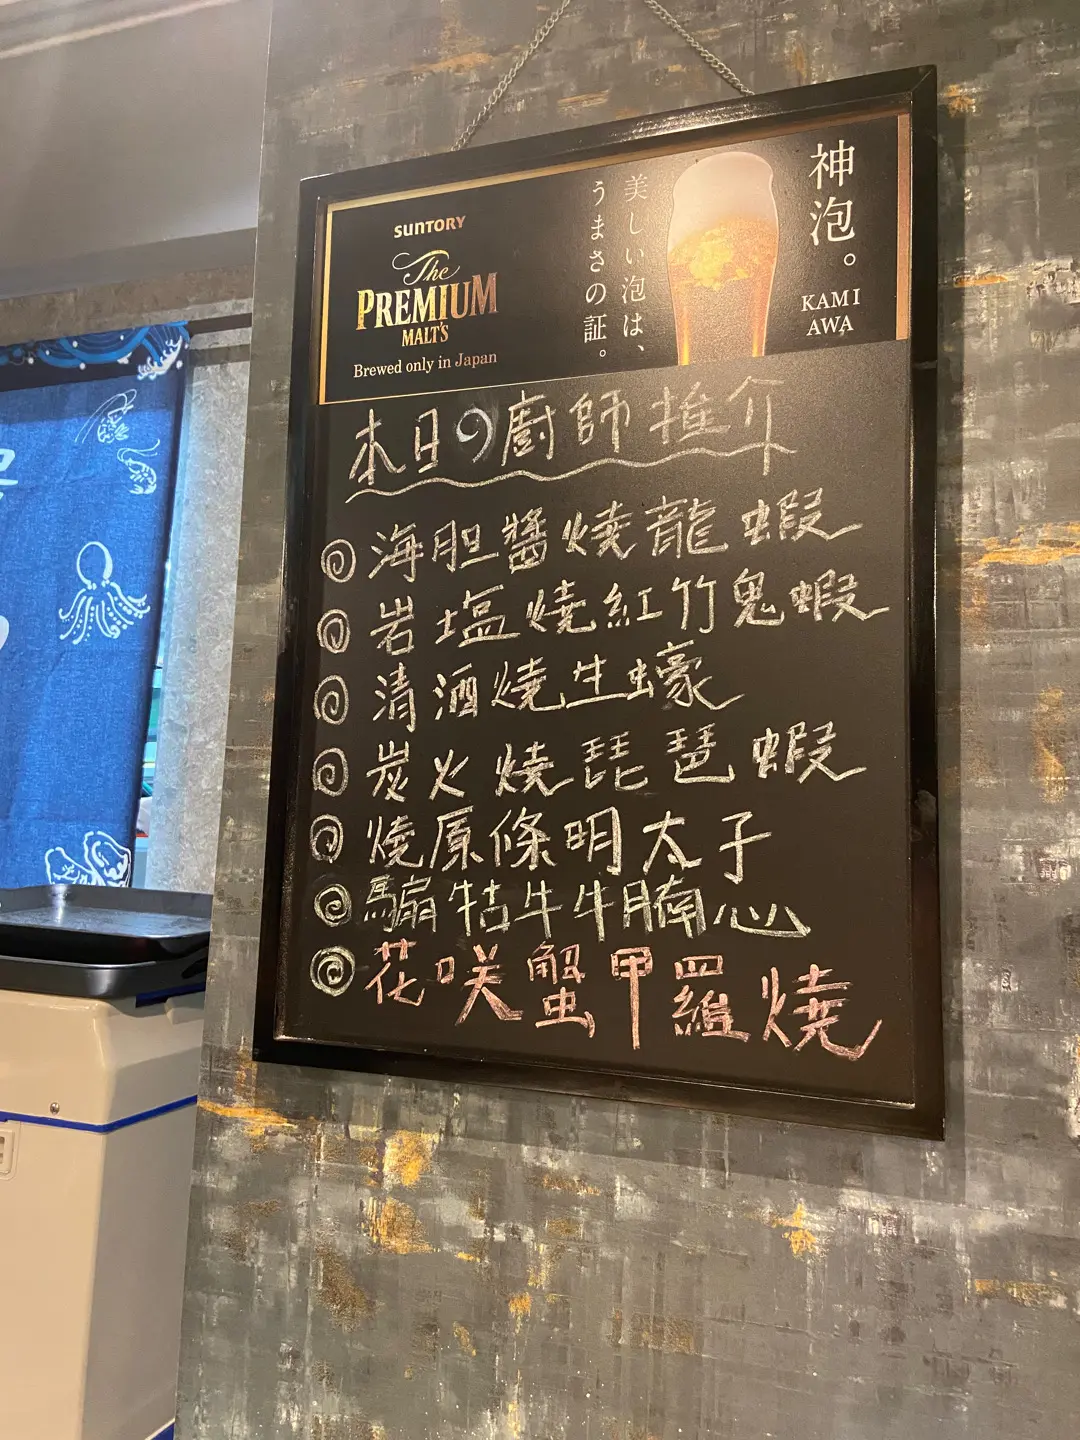 SUNTORY
The
PREMIUM
MALT'S
Brewed only in Japan
神泡。
KAMI
AWA
美しい泡は、
うまさの証。
本日の廚師推介
海胆醬燒龍蝦
岩塩燒紅竹鬼蝦
清酒燒生蠔
炭火燒琵琶蝦
燒原條明太子
馬扇牯牛牛腩心
花咲蟹甲羅燒